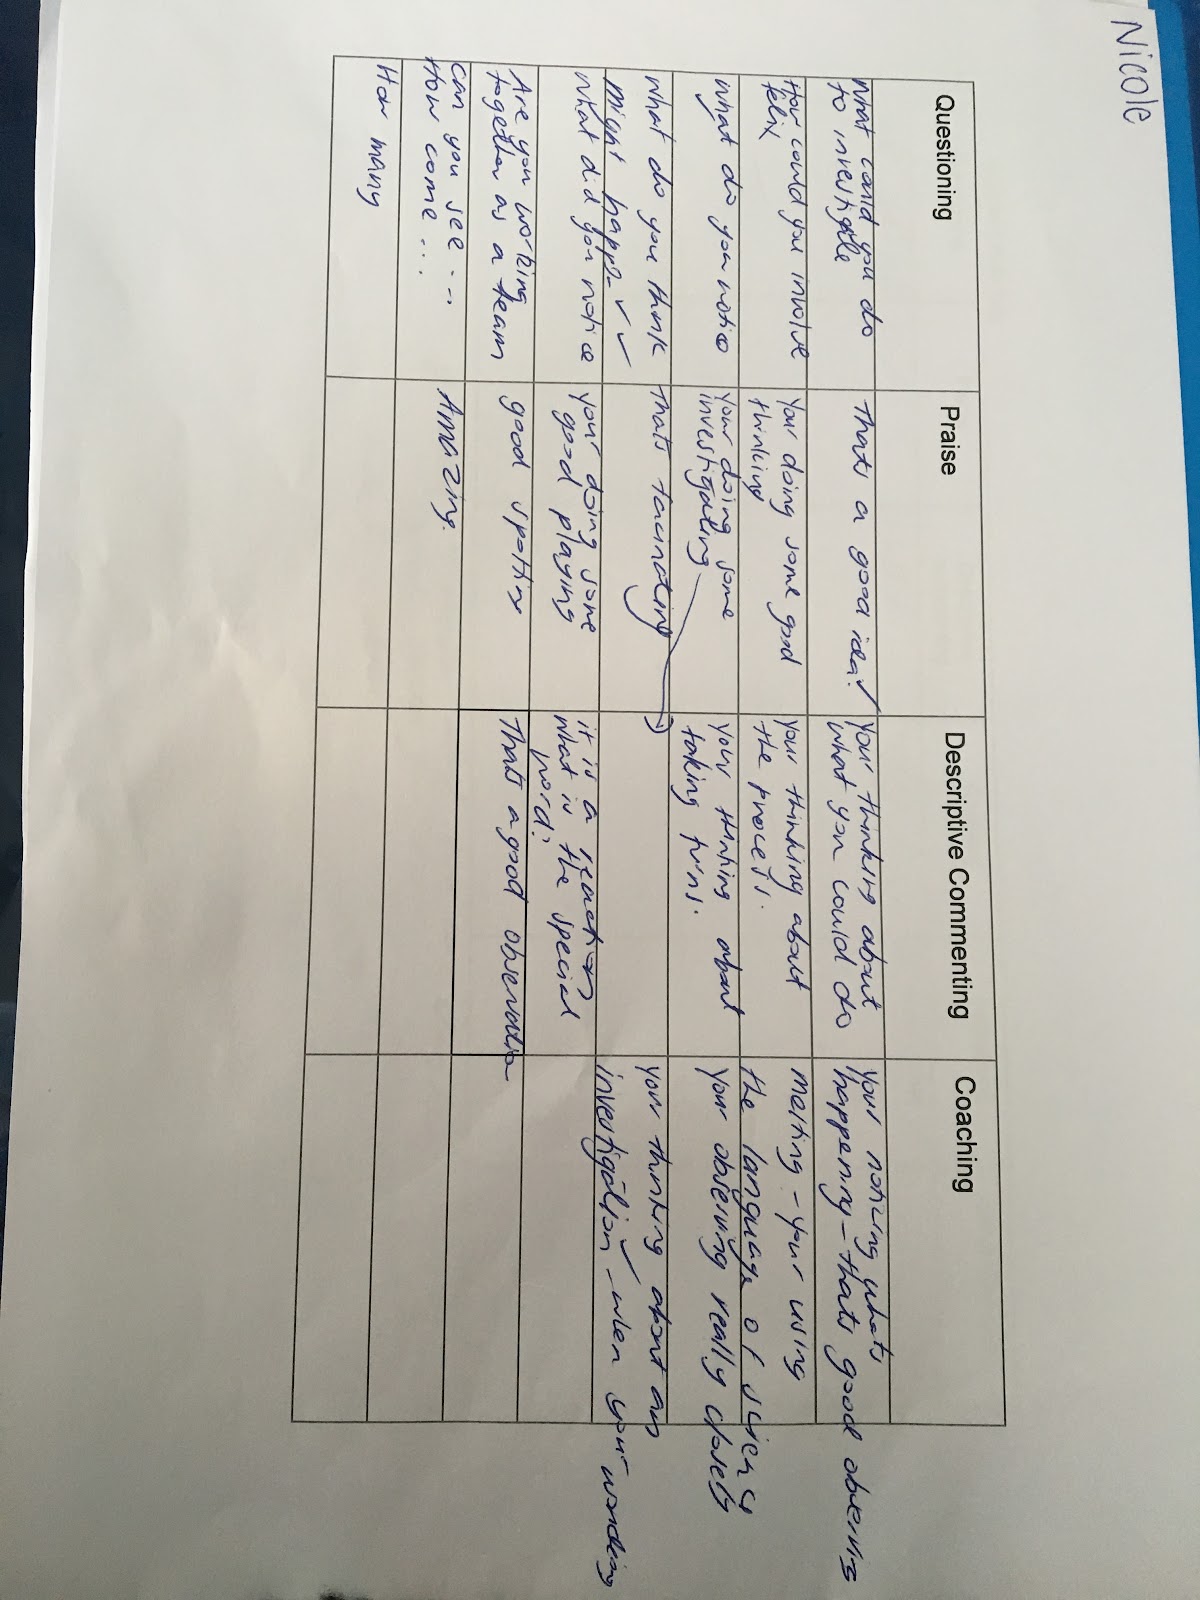 Nicole
Questioning
Praise
Descriptive Commenting
Coaching
What could you do
to investigate
thats a good idea! ✓
your thinking about
what you could do
your noticing whats
happening - thats good observing
How could you involve
felix
your doing some good
thinking
your thinking about
the process.
melting - your using
the language of science
what do you notice
your doing some
investigating
your thinking about
taking turns.
your observing really closely
what do you think
might happen ✓ ✓
thats facinating
your thinking about an
investigation ✓ - when your wondering
what did you notice
your doing some
good playing
it is a reaction
what is the special
word?
Are you working
together as a team
good spotting
Thats a good observation
can you see ...
How come ...
Amazing.
How many